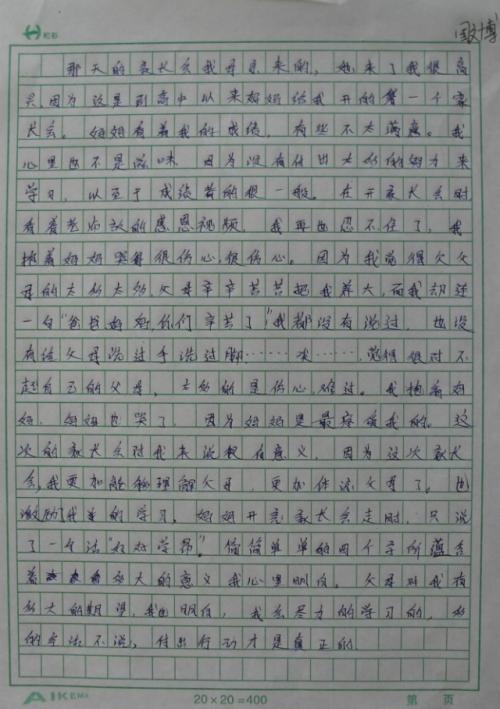 国才博
那天的家长会我母亲来的，她来了我很高
兴因为这是到高中以来妈妈给我开的第一个家
长会。妈妈看着我的成绩，有些不太满意。我
心里也不是滋味，因为没有付出太多的努力来
学习，以至于成绩考的很一般。在开家长会时
看着老师放的感恩视频，我再也忍不住了，我
抱着妈妈哭得很伤心，很伤心。因为我觉得欠父
母的太多太多，父母辛辛苦苦把我养大，而我却连
一句“爸爸妈妈你们辛苦了”我都没有说过，也没
有给父母洗过手洗过脚……唉……，觉得很对不
起自己的父母，太多的是伤心难过。我抱着妈
妈，妈妈也哭了，因为妈妈是最疼爱我的。这
次的家长会对我来说很有意义，因为这次家长
会，我更加能够理解父母，更加体谅父母了。也
激励了我的学习，妈妈开完家长会走时，只说
了一句话“好好学昂”。简简单单的四个字所蕴含
着多大的意义我心里明白。父母对我有
多大的期望，我也明白，我会尽力的学习的，多
的字法不说，付出行动才是真正的
AIKEMA
20×20=400
第 页